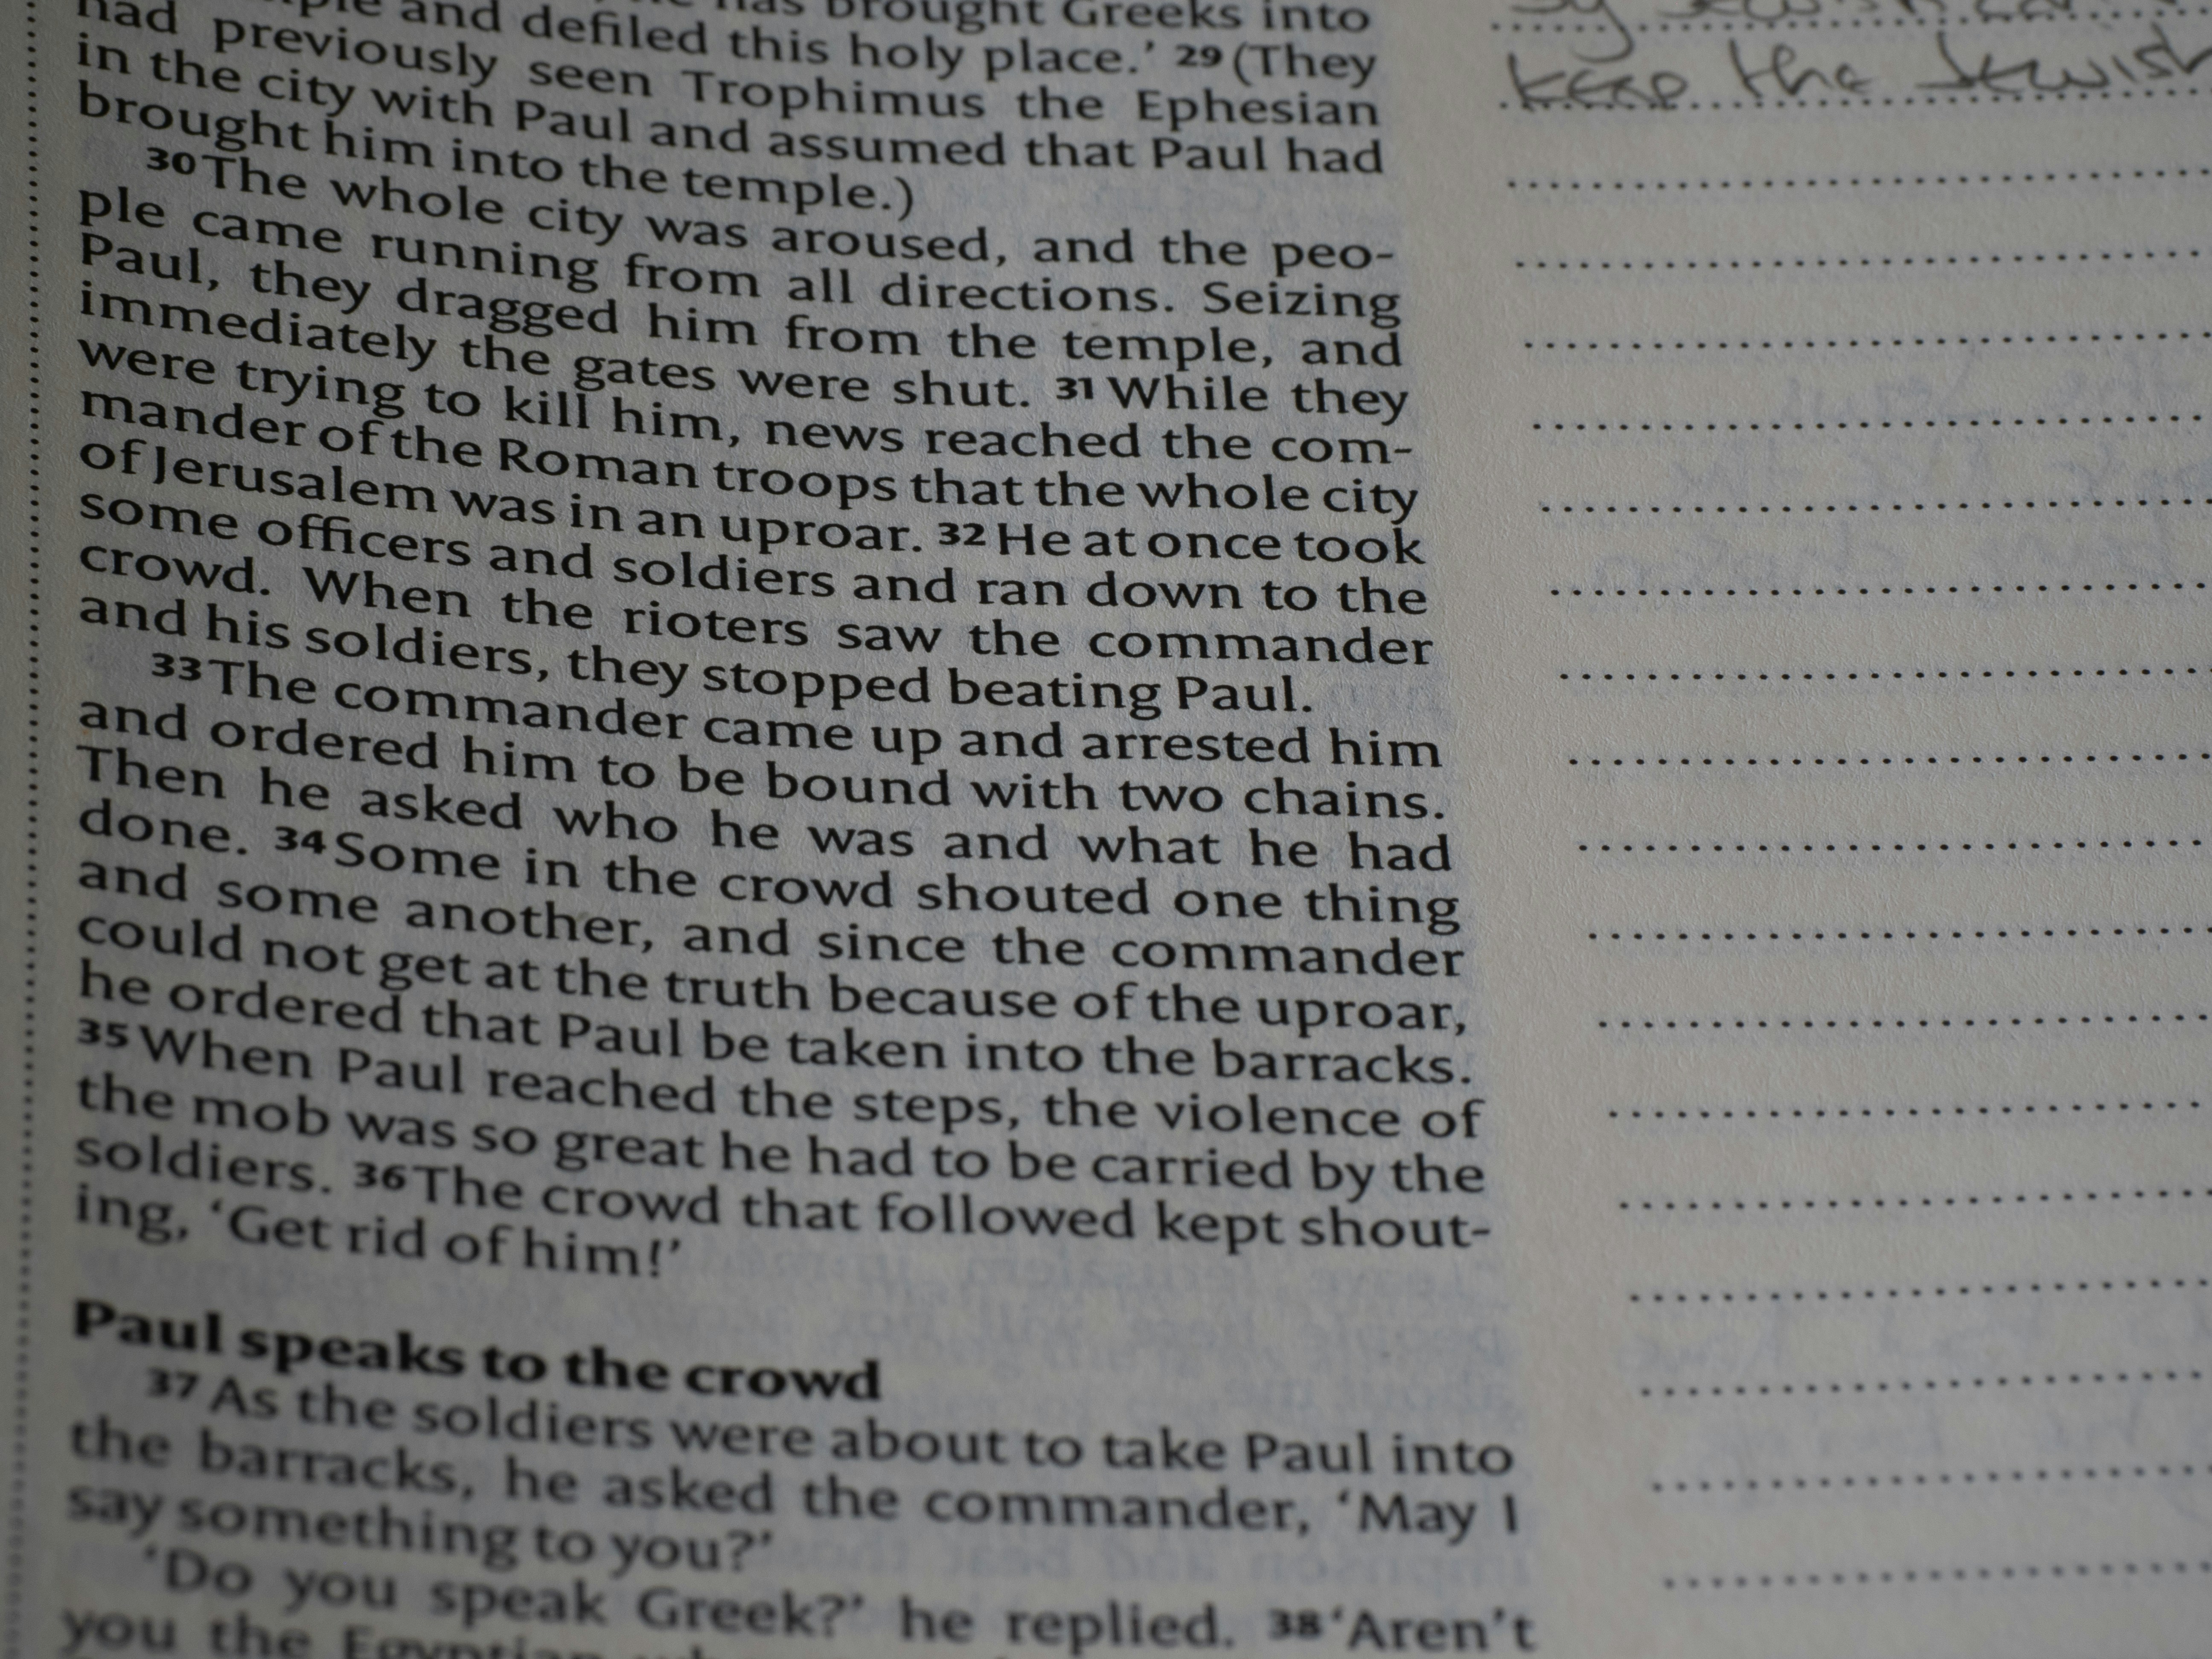 and defiled this holy place.' 29 (They
had previously seen Trophimus the Ephesian
in the city with Paul and assumed that Paul had
brought him into the temple.)
30 The whole city was aroused, and the peo-
ple came running from all directions. Seizing
Paul, they dragged him from the temple, and
immediately the gates were shut. 31 While they
were trying to kill him, news reached the com-
mander of the Roman troops that the whole city
of Jerusalem was in an uproar. 32 He at once took
some officers and soldiers and ran down to the
crowd. When the rioters saw the commander
and his soldiers, they stopped beating Paul.
33 The commander came up and arrested him
and ordered him to be bound with two chains.
Then he asked who he was and what he had
done. 34 Some in the crowd shouted one thing
and some another, and since the commander
could not get at the truth because of the uproar,
he ordered that Paul be taken into the barracks.
35 When Paul reached the steps, the violence of
the mob was so great he had to be carried by the
soldiers. 36 The crowd that followed kept shout-
ing, 'Get rid of him!'
Paul speaks to the crowd
37 As the soldiers were about to take Paul into
the barracks, he asked the commander, 'May I
say something to you?'
'Do you speak Greek?' he replied. 38 'Aren't
you the Egyptian
keep the Jewish